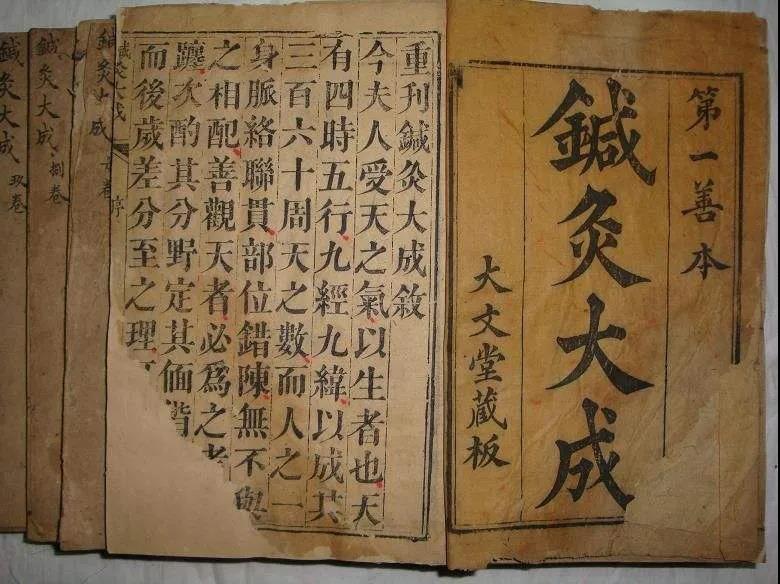 第一善本
鍼灸大成
大文堂藏板
重刊鍼灸大成敘
今夫人受天之氣以生者也天
有四時五行九經九緯以成其
三百六十周天之數而人之一
身脈絡聯貫部位錯陳無不與
之相配善觀天者必爲之考
躔次酌其分野定其偭
而後歲差分至之理
鍼灸大成
序
鍼灸大成
卷
鍼灸大成
捌卷
鍼灸大成
玖卷